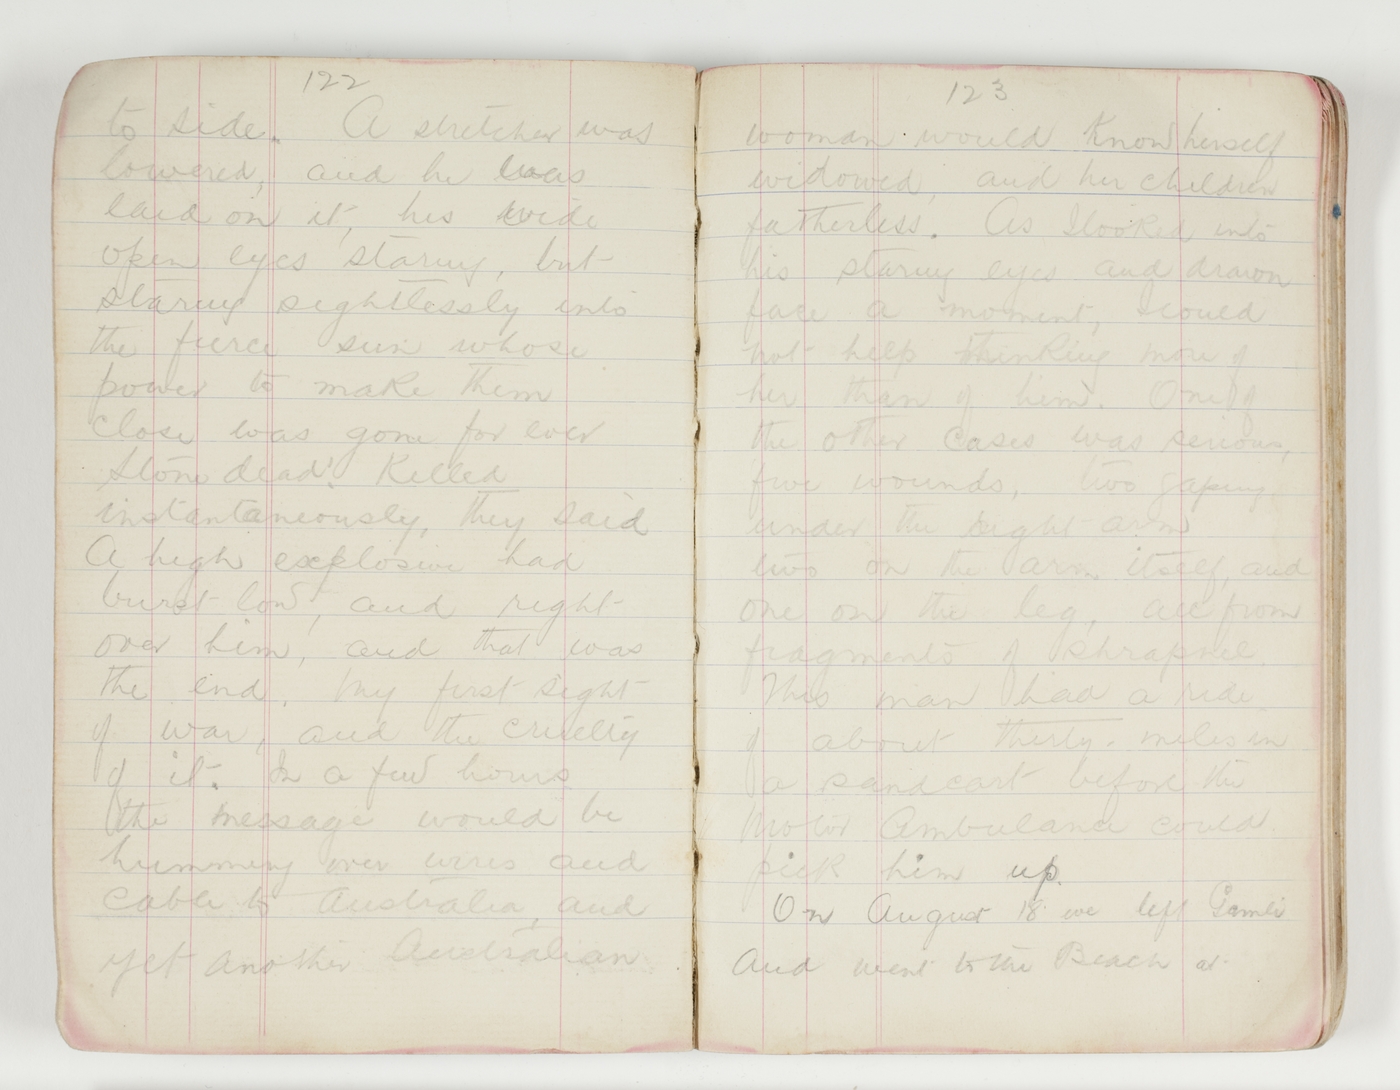 122
to side. A stretcher was
lowered, and he was
laid on it, his wide
open eyes staring, but
staring sightlessly into
the fierce sun whose
power to make them
close was gone for ever
Stone dead! Killed
instantaneously, they said
A high explosive had
burst low, and right
over him, and that was
the end. My first sight
of war, and the cruelty
of it. In a few hours
the message would be
humming over wires and
cable to Australia, and
yet another Australian
123
woman would know herself
widowed, and her children
fatherless. As I looked into
his staring eyes and drawn
face a moment, I could
not help thinking more of
her than of him. One of
the other cases was serious,
five wounds, two gaping
under the right arm
two on the arm itself, and
one on the leg, all from
fragments of shrapnel.
This man had a ride
of about thirty miles in
a sandcart before the
Motor Ambulance could
pick him up.
On August 18 we left Gamli
and went to the Beach at